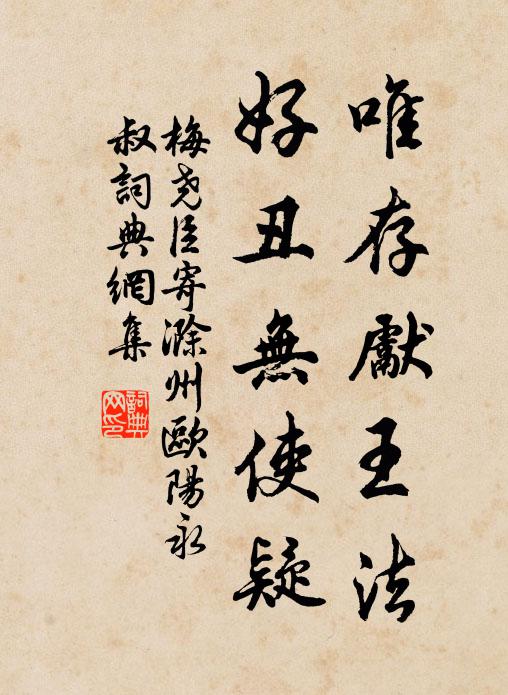 唯存獻王法
好丑無使疑
梅尧臣寄滁州歐陽永
叔詞典網集
詞典
网印